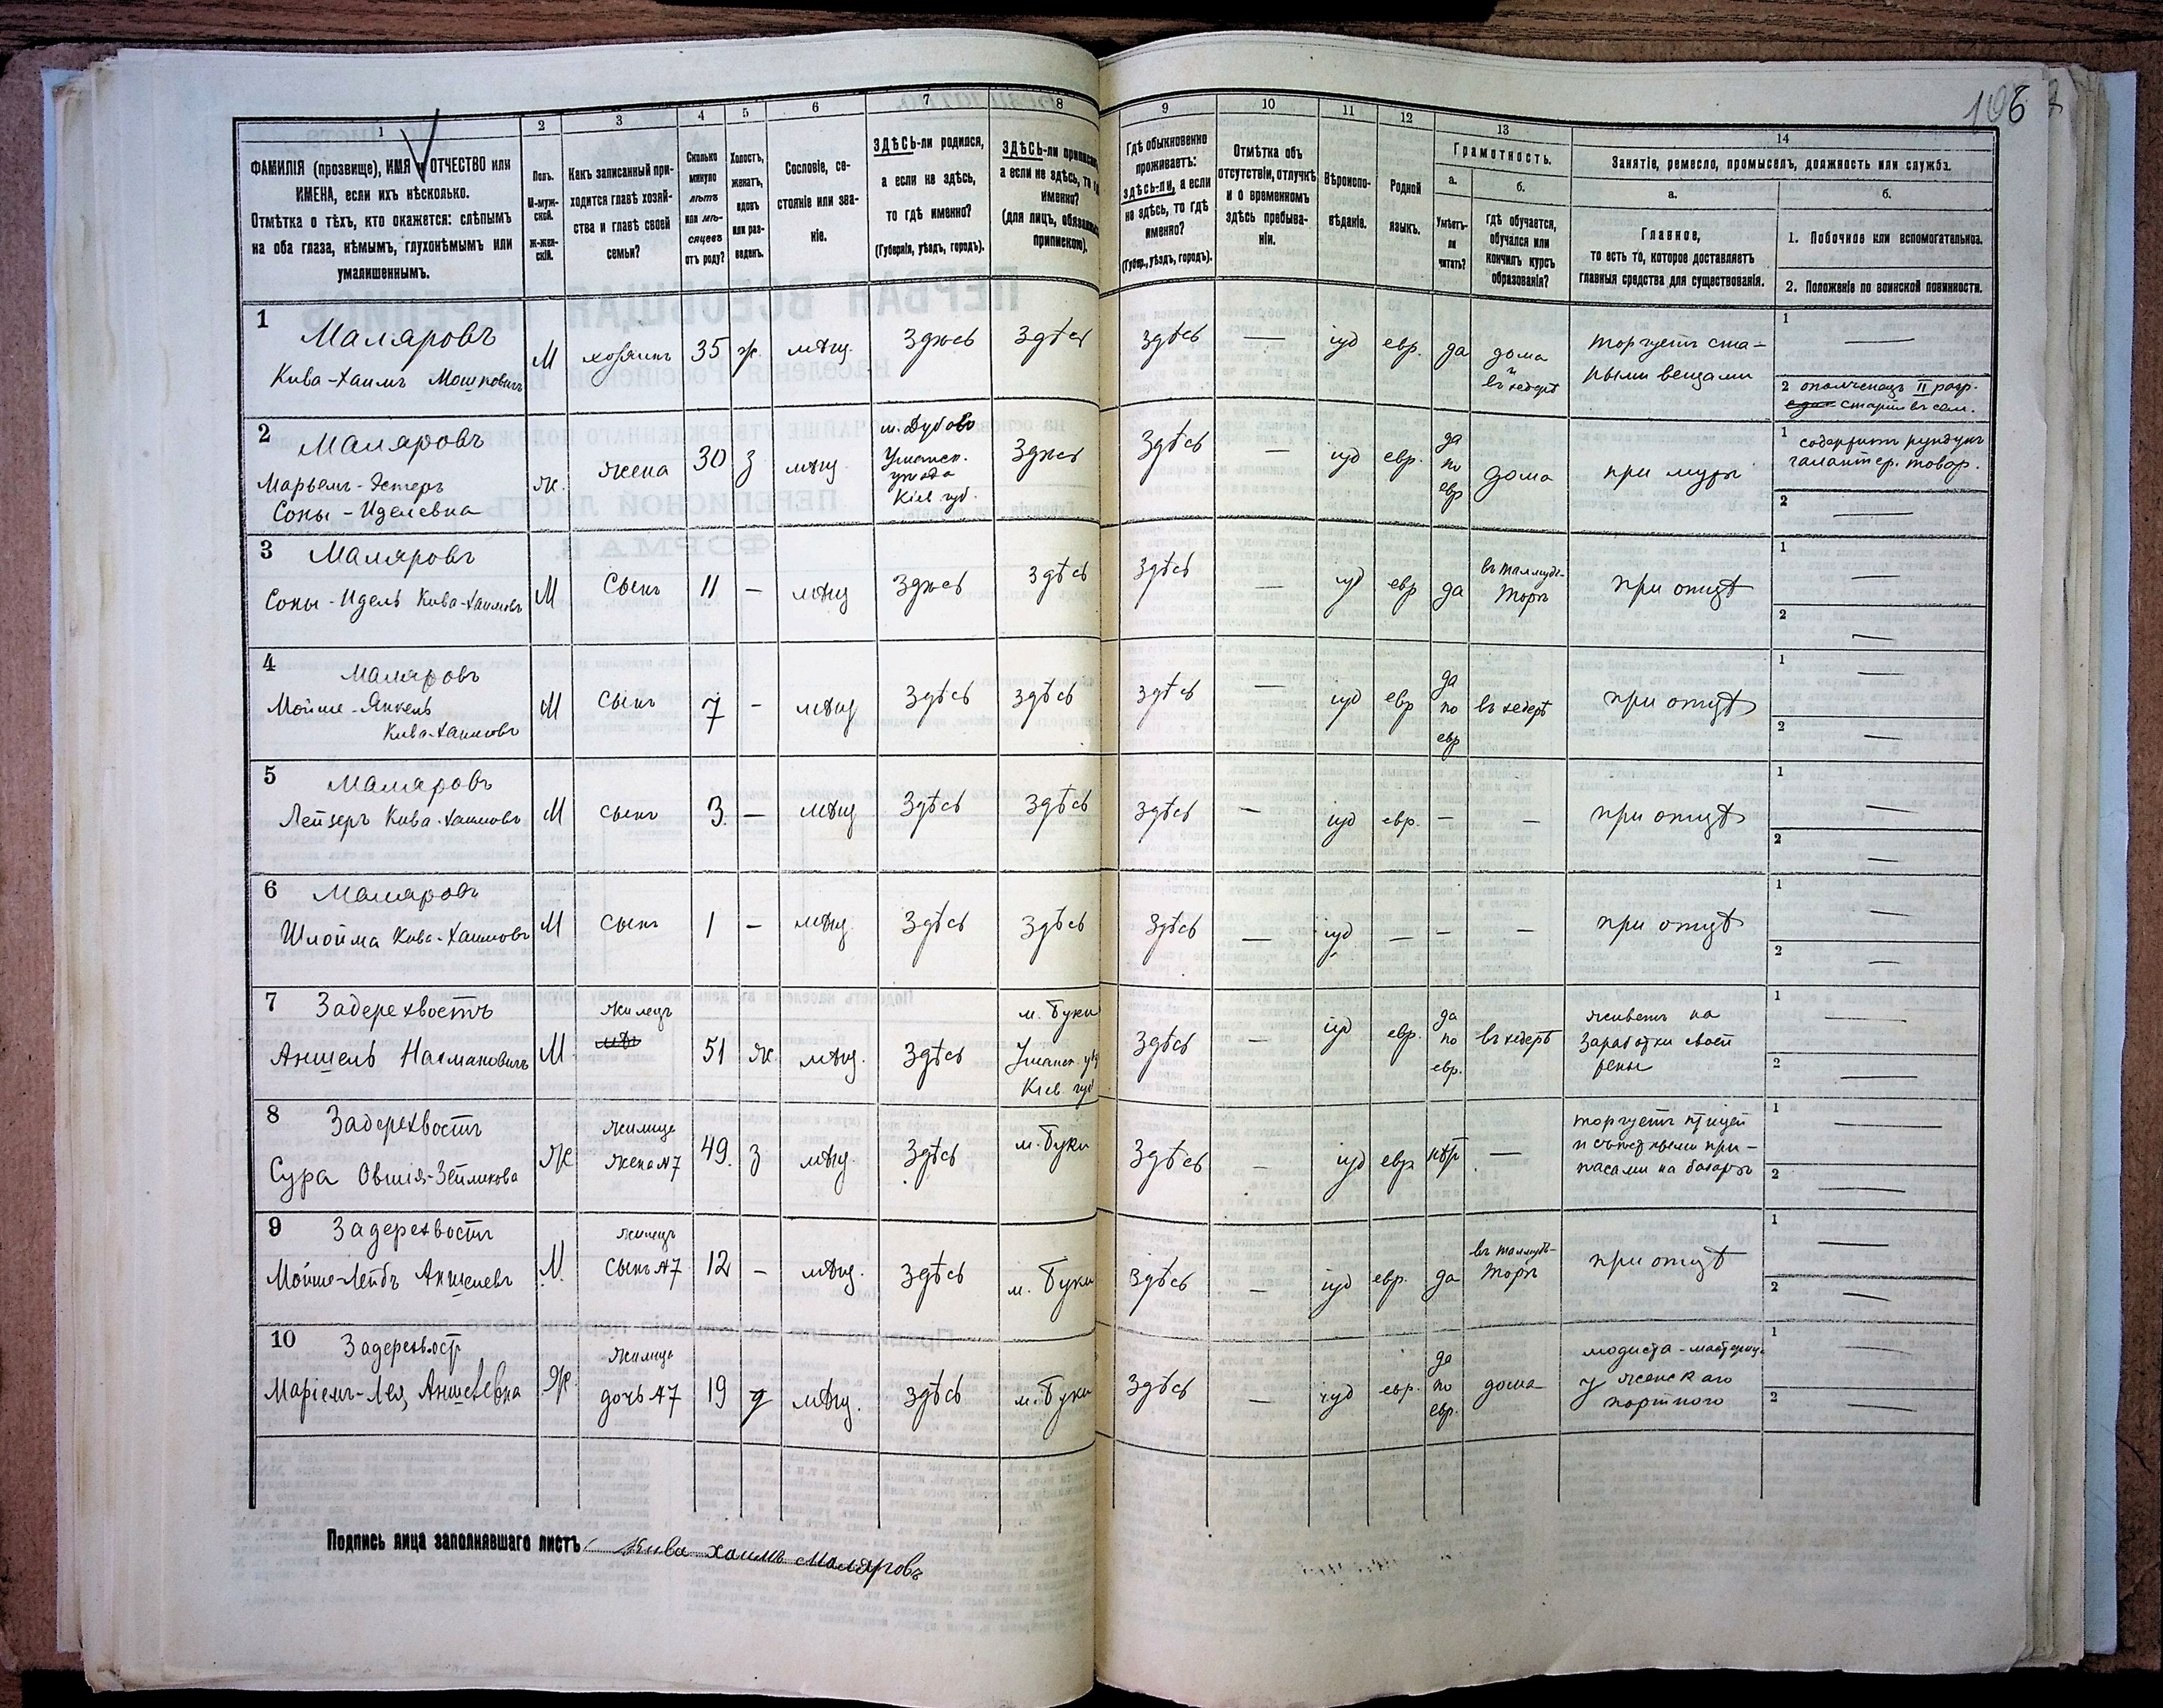 108
1
ФАМИЛІЯ (прозвище), ИМЯ и ОТЧЕСТВО или
ИМЕНА, если ихъ нѣсколько.
Отмѣтка о тѣхъ, кто окажется: слѣпымъ
на оба глаза, нѣмымъ, глухонѣмымъ или
умалишеннымъ.
2
Полъ.
М-муж-
ской.
Ж-жен-
скій.
3
Какъ записанный при-
ходится главѣ хозяй-
ства и главѣ своей
семьи?
4
Сколько
минуло
лѣтъ
или мѣ-
сяцевъ
отъ роду?
5
Холостъ,
женатъ,
вдовъ
или раз-
веденъ.
6
Сословіе, со-
стояніе или зва-
ніе.
7
ЗДѢСЬ-ли родился,
а если не здѣсь,
то гдѣ именно?
(Губернія, уѣздъ, городъ).
8
ЗДѢСЬ-ли приписанъ,
а если не здѣсь, то гдѣ
именно?
(для лицъ, обязанныхъ
припискою).
9
Гдѣ обыкновенно
проживаетъ:
здѣсь-ли, а если
не здѣсь, то гдѣ
именно?
(Губер., уѣздъ, городъ).
10
Отмѣтка объ
отсутствіи, отлучкѣ
и о временномъ
здѣсь пребыва-
ніи.
11
Вѣроиспо-
вѣданіе.
12
Родной
языкъ.
13
Грамотность.
а.
Умѣетъ-
ли
читать?
б.
гдѣ обучается,
обучался или
кончилъ курсъ
образованія?
14
Занятіе, ремесло, промыселъ, должность или служба.
а.
Главное,
то есть то, которое доставляетъ
главныя средства для существованія.
б.
1. Побочное или вспомогательное.
2. Положеніе по воинской повинности.
1
Маляровъ
Кива-Хаимъ Мошковичъ
М
хозяинъ
35
ж.
мѣщ.
Здѣсь
Здѣсь
Здѣсь
—
іуд
евр.
да
дома
и
въ хедерѣ
торгуетъ ста-
рыми вещами
1
—
2 ополченецъ II разр.
старшій въ сем.
2
Маляровъ
Марьемъ-Эстеръ
Соны-Иделевна
ж.
жена
30
з
мѣщ
м. Дубово
Уманск.
уѣзда
Кіев губ.
Здѣсь
Здѣсь
—
іуд
евр.
да
по
евр
дома
при мужѣ
1 содержитъ рундукъ
галантер. товар.
2 —
3
Маляровъ
Соны-Идель Кива-Хаимовъ
М
Сынъ
11
—
мѣщ
Здѣсь
здѣсь
здѣсь
—
іуд
евр
да
въ талмудъ-
Торѣ
при отцѣ
1
—
2
—
4
Маляровъ
Мойше-Янкель
Кива-Хаимовъ
М
Сынъ
7
-
мѣщ
Здѣсь
Здѣсь
здѣсь
—
іуд
евр
да
по
евр
въ хедерѣ
при отцѣ
1
—
2
—
5
Маляровъ
Лейзеръ Кива-Хаимовъ
М
сынъ
3.
—
мѣщ
Здѣсь
Здѣсь
здѣсь
—
іуд
евр.
—
—
при отцѣ
1
—
2
—
6
Маляровъ
Шлойма Кива-Хаимовъ
М
сынъ
1
—
мѣщ.
Здѣсь
Здѣсь
Здѣсь
—
іуд
—
—
—
при отцѣ
1
—
2
—
7
Задерехвостъ
Аншель Нахмановичъ
М
жилецъ
51
ж.
мѣщ.
Здѣсь
м. Буки
Уманск. уѣз
Кіев губ
Здѣсь
—
іуд
евр.
да
по
евр.
въ хедерѣ
живетъ на
Заработки своей
жены
1
—
2
—
8
Задерехвостъ
Сура Овшія-Зейликова
Ж
жилица
жена №7
49.
з
мѣщ.
Здѣсь
м. Буки
Здѣсь
—
іуд
евр
нѣт
—
торгуетъ птицей
и съѣстными при-
пасами на базарѣ
1
—
2
—
9
Задерехвостъ
Мойше-Лейбъ Аншелевъ
М.
жилецъ
сынъ №7
12
—
мѣщ.
здѣсь
м. Буки
здѣсь
—
іуд
евр.
да
въ талмудъ-
Торѣ
при отцѣ
1
—
2
—
10
Задерехвостъ
Маріемъ-Лея Аншелевна
Ж.
жилица
дочь №7
19
д
мѣщ.
здѣсь
м. Буки
здѣсь
—
іуд
евр.
да
по
евр.
дома
модистка-мастериц.
у женскаго
портного
1
—
2
—
Подпись лица заполнявшаго листъ: Кива хаимъ Маляровъ